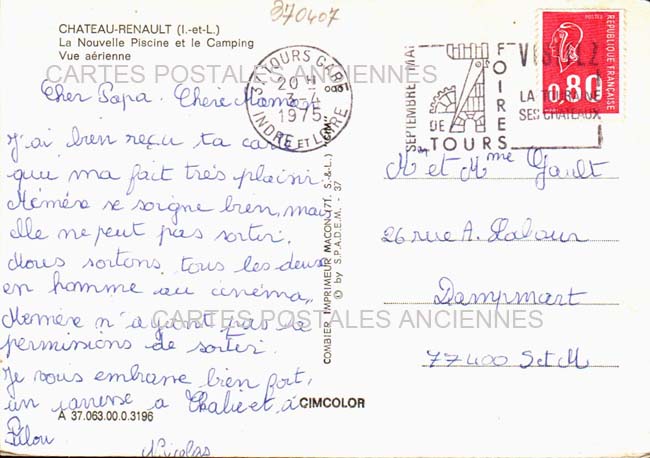 370407
CHATEAU-RENAULT (I.-et-L.)
La Nouvelle Piscine et le Camping
Vue aérienne
CARTES POSTALES ANCIENNES
Cher Papa. Chère Maman
J'ai bien reçu ta carte
qui ma fait très plaisir.
Mémère se soigne bien, mais
elle ne peut pas sortir.
Nous sortons tous les deux
en homme au cinéma,
Mémère n'ayant pas de
permissions de sortir.
Je vous embrasse bien fort,
un caresse a et à
Pilou
Nicolas
A 37.063.00.0.3196
CIMCOLOR
COMBIER IMPRIMEUR MACON (71. S.-&-L.) "CIM"
© by S.P.A.D.E.M. - 37
37 TOURS GARE
20 H
3-4
1975
INDRE ET LOIRE
SEPTEMBRE MAI
FOIRES
DE
TOURS
VISITEZ
LA TOURAINE
SES CHATEAUX
POSTES
0,80
REPUBLIQUE FRANÇAISE
Mr et Mme Gault
26 rue A. Lahour
Dampmart
77400 S et M
CARTES POSTALES ANCIENNES